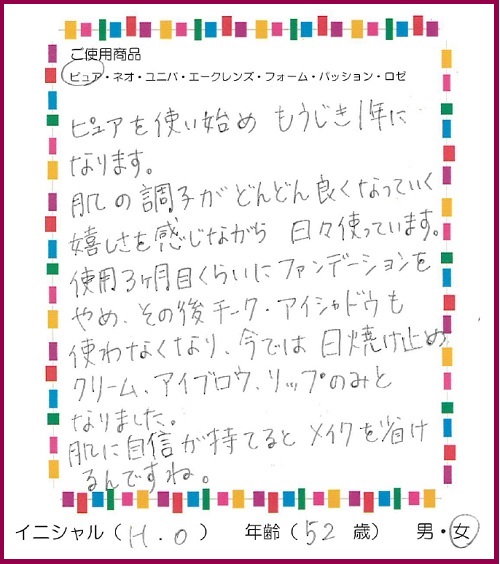 ご使用商品
ピュア・ネオ・ユニバ・エークレンズ・フォーム・パッション・ロゼ
ピュアを使い始め もうじき1年に
なります。
肌の調子が どんどん良くなっていく
嬉しさを感じながら 日々使っています。
使用3ヶ月目くらいにファンデーションを
やめ、その後チーク・アイシャドウも
使わなくなり、今では 日焼け止め
クリーム、アイブロウ、リップのみと
なりました。
肌に自信が持てると メイクを省け
るんですね。
イニシャル（H.O） 年齢（52歳） 男・女